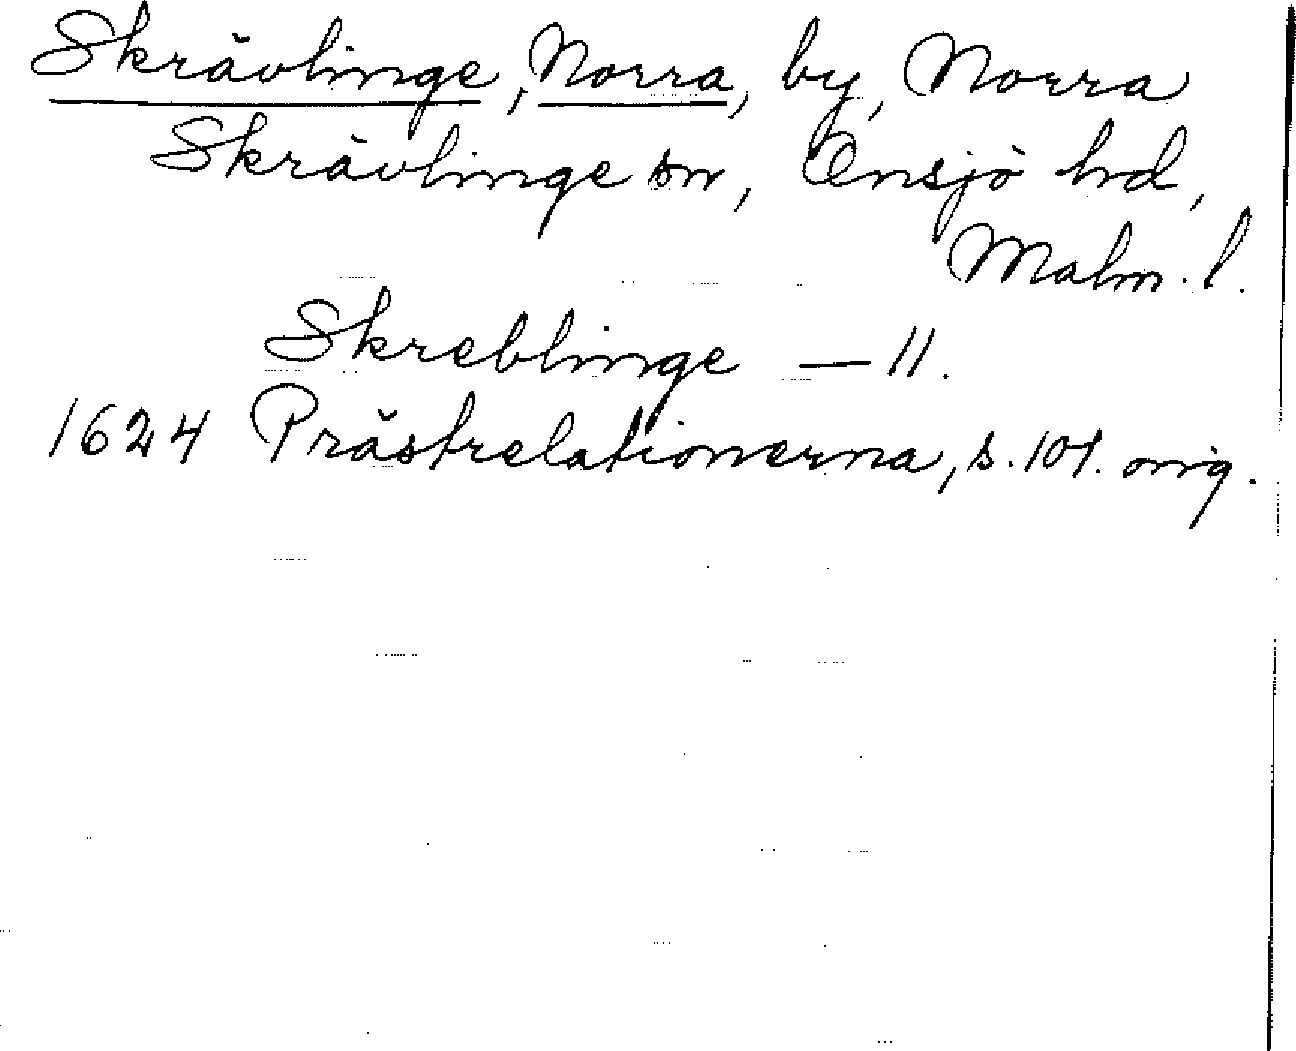 Skrävlinge, Norra, by, Norra
Skrävlinge sn, Onsjö hd,
Malm. l.
Skreblinge — 11.
1624 Prästrelationerna, s. orig.